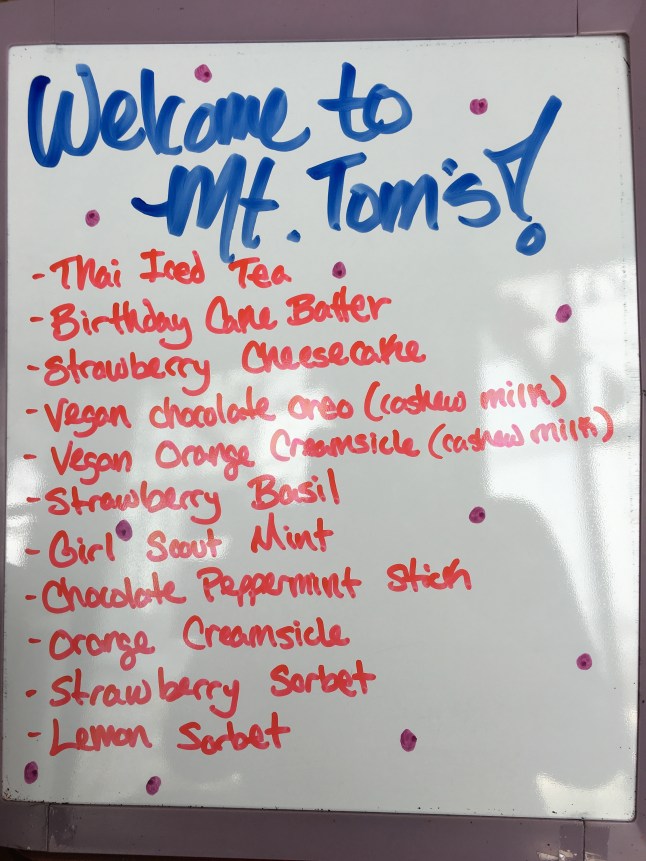 Welcome to
Mt. Tom's!
- Thai Iced Tea
- Birthday Cake Batter
- Strawberry Cheesecake
- Vegan chocolate oreo (cashew milk)
- Vegan Orange Creamsicle (cashew milk)
- Strawberry Basil
- Girl Scout Mint
- Chocolate Peppermint Stick
- Orange Creamsicle
- Strawberry Sorbet
- Lemon Sorbet